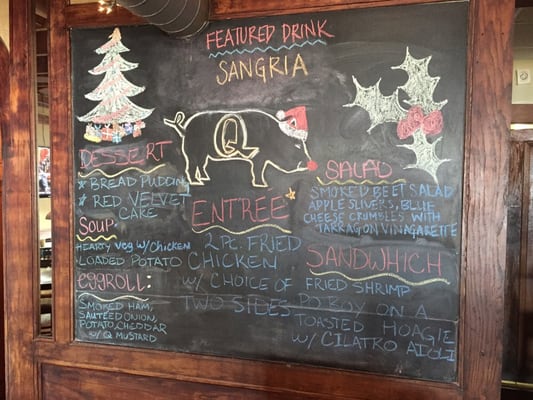 FEATURED DRINK
SANGRIA
Q
DESSERT
★ BREAD PUDDING
★ RED VELVET
CAKE
SOUP
HEARTY VEG W/ CHICKEN
LOADED POTATO
EGGROLL:
SMOKED HAM,
SAUTEED ONION,
POTATO, CHEDDAR
W/ Q MUSTARD
ENTREÉ
2 PC. FRIED
CHICKEN
W/ CHOICE OF
TWO SIDES
SALAD
SMOKED BEET SALAD
APPLE SLIVERS, BLUE
CHEESE CRUMBLES WITH
TARRAGON VINAGARETTE
SANDWHICH
FRIED SHRIMP
PO BOY ON A
TOASTED HOAGIE
W/ CILATKO AIOLI